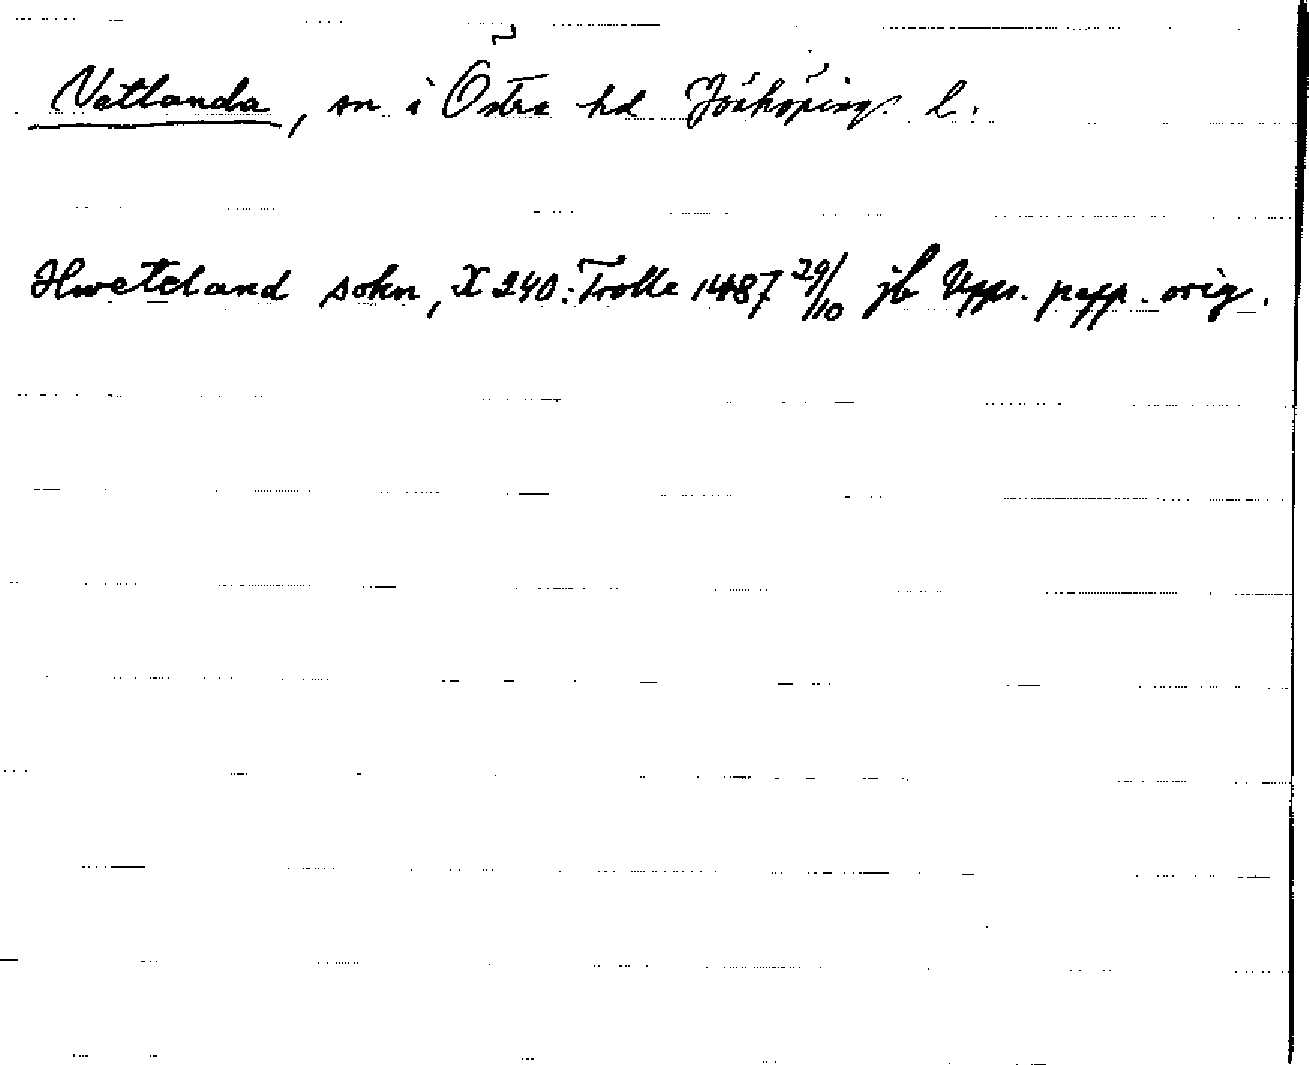 Vetlanda, sn i Östra hd Jönköpings l.
Hweteland sokn, X 240: Trolle 1487 29/10 jb Upps. papp. orig.